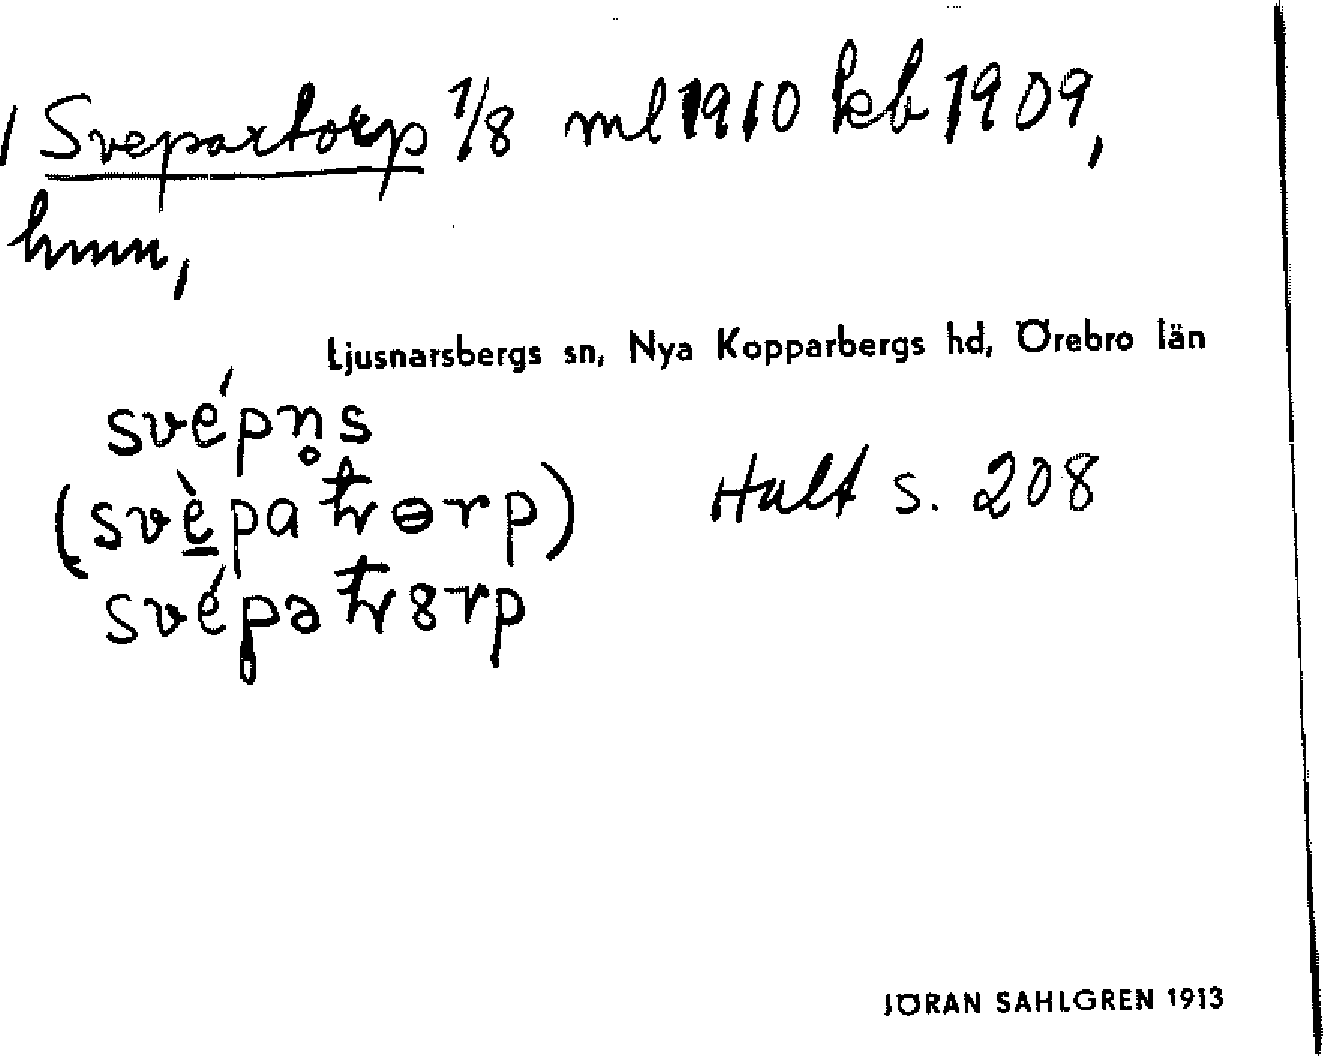 Svepartorp 1/8 ml 1910 kb 1909,
hmn,
Ljusnarsbergs sn, Nya Kopparbergs hd, Örebro län
svépn̥s
(svè̱paŧrɵrp) Hult s. 208
svépaŧr8rp
JÖRAN SAHLGREN 1913